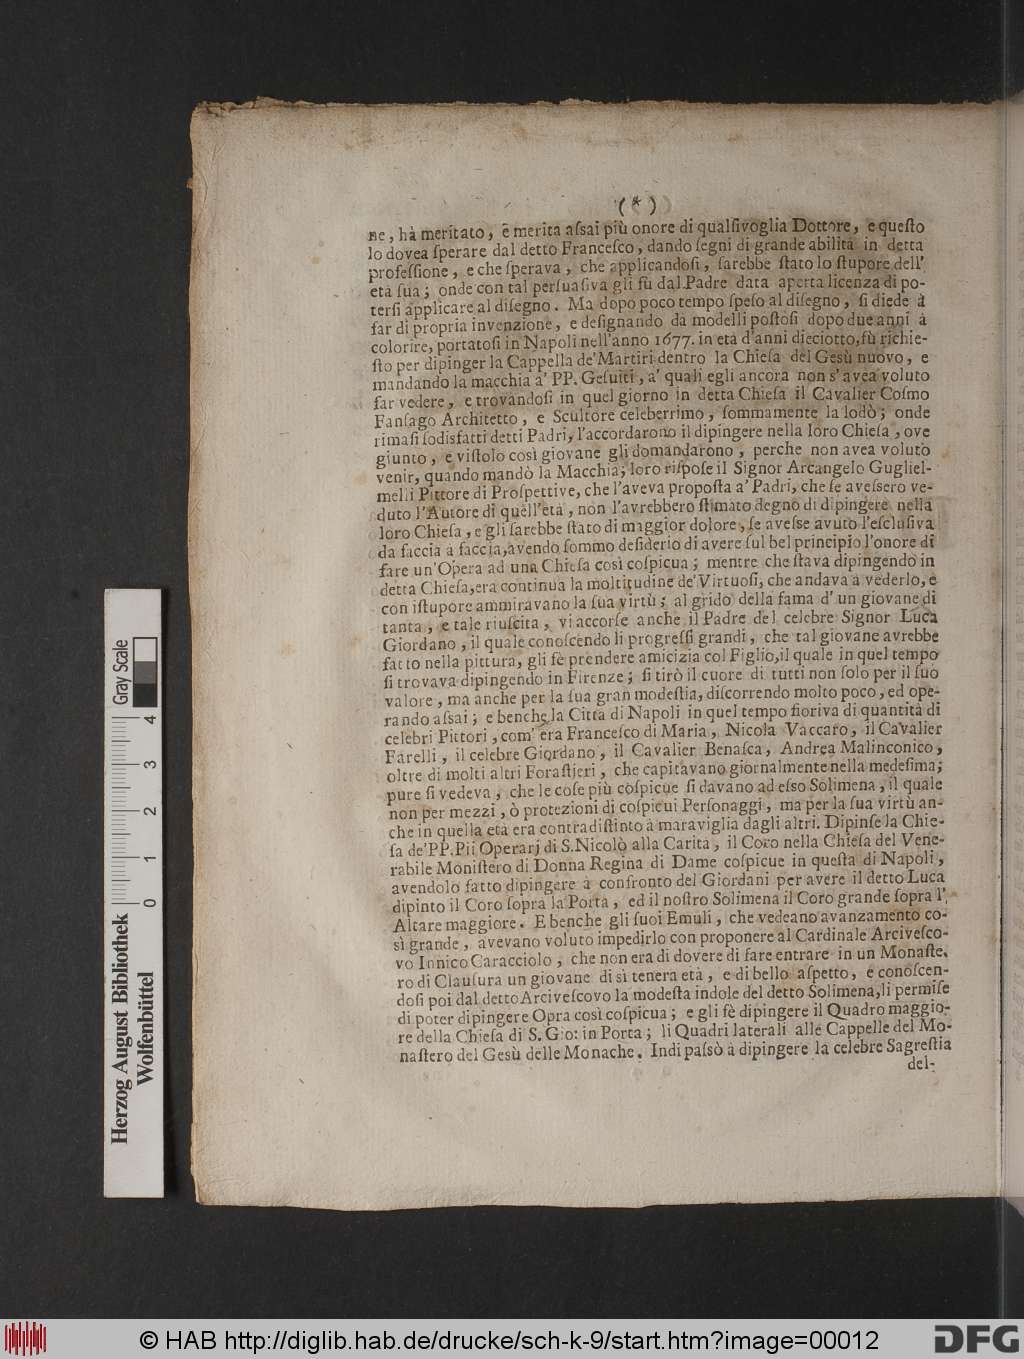 (*)
ne, hà meritato, e merita aſsai più onore di qualſivoglia Dottore, e queſto
lo dovea ſperare dal detto Franceſco, dando ſegni di grande abilità in detta
profeſſione, e che ſperava, che applicandoſi, ſarebbe ſtato lo ſtupore dell'
età ſua; onde con tal perſuaſiva gli fù dal Padre data aperta licenza di po-
terſi applicare al diſegno. Ma dopo poco tempo ſpeſo al diſegno, ſi diede à
far di propria invenzione, e deſignando da modelli poſtoſi dopo due anni à
colorire, portatoſi in Napoli nell'anno 1677. in età d'anni dieciotto, fù richie-
ſto per dipinger la Cappella de' Martiri dentro la Chieſa del Gesù nuovo, e
mandando la macchia a' PP. Geſuiti, a' quali egli ancora non s'avea voluto
far vedere, e trovandoſi in quel giorno in detta Chieſa il Cavalier Coſmo
Fanſago Architetto, e Scultore celeberrimo, ſommamente la lodò; onde
rimaſi ſodisfatti detti Padri, l'accordarono il dipingere nella loro Chieſa, ove
giunto, e viſtolo così giovane gli domandarono, perche non avea voluto
venir, quando mandò la Macchia; loro riſpoſe il Signor Arcangelo Gugliel-
melli Pittore di Proſpettive, che l'aveva propoſta a' Padri, che ſe aveſsero ve-
duto l'Autore di quell'età, non l'avrebbero ſtimato degno di dipingere nella
loro Chieſa, e gli ſarebbe ſtato di maggior dolore, ſe aveſse avuto l'eſcluſiva
da faccia a faccia, avendo ſommo deſiderio di avere ſul bel principio l'onore di
fare un'Opera ad una Chieſa così coſpicua; mentre che ſtava dipingendo in
detta Chieſa, era continua la moltitudine de' Virtuoſi, che andava a vederlo, e
con iſtupore ammiravano la ſua virtù; al grido della fama d' un giovane di
tanta, e tale riuſcita, vi accorſe anche il Padre del celebre Signor Luca
Giordano, il quale conoſcendo li progreſſi grandi, che tal giovane avrebbe
fatto nella pittura, gli fè prendere amicizia col Figlio, il quale in quel tempo
ſi trovava dipingendo in Firenze; ſi tirò il cuore di tutti non ſolo per il ſuo
valore, ma anche per la ſua gran modeſtia, diſcorrendo molto poco, ed ope-
rando aſsai; e benche la Città di Napoli in quel tempo fioriva di quantità di
celebri Pittori, com' era Franceſco di Maria, Nicola Vaccaro, il Cavalier
Farelli, il celebre Giordano, il Cavalier Benaſca, Andrea Malinconico,
oltre di molti altri Foraſtieri, che capitavano giornalmente nella medeſima;
pure ſi vedeva, che le coſe più coſpicue ſi davano ad eſso Solimena, il quale
non per mezzi, ò protezioni di coſpicui Perſonaggi, ma per la ſua virtù an-
che in quella età era contradiſtinto à maraviglia dagli altri. Dipinſe la Chie-
ſa de' PP. Pii Operarj di S. Nicolò alla Carità, il Coro nella Chieſa del Vene-
rabile Moniſtero di Donna Regina di Dame coſpicue in queſta di Napoli,
avendolo fatto dipingere à confronto del Giordani per avere il detto Luca
dipinto il Coro ſopra la Porta, ed il noſtro Solimena il Coro grande ſopra l'
Altare maggiore. E benche gli ſuoi Emuli, che vedeano avanzamento co-
sì grande, avevano voluto impedirlo con proponere al Cardinale Arciveſco-
vo Innico Caracciolo, che non era di dovere di fare entrare in un Monaſte-
ro di Clauſura un giovane di sì tenera età, e di bello aſpetto, e conoſcen-
doſi poi dal detto Arciveſcovo la modeſta indole del detto Solimena, li permiſe
di poter dipingere Opra così coſpicua; e gli fè dipingere il Quadro maggio-
re della Chieſa di S. Gio: in Porta; li Quadri laterali alle Cappelle del Mo-
naſtero del Gesù delle Monache. Indi paſsò a dipingere la celebre Sagreſtia
del-
Gray Scale
0 1 2 3 4
Herzog August Bibliothek
Wolfenbüttel
© HAB http://diglib.hab.de/drucke/sch-k-9/start.htm?image=00012
DFG